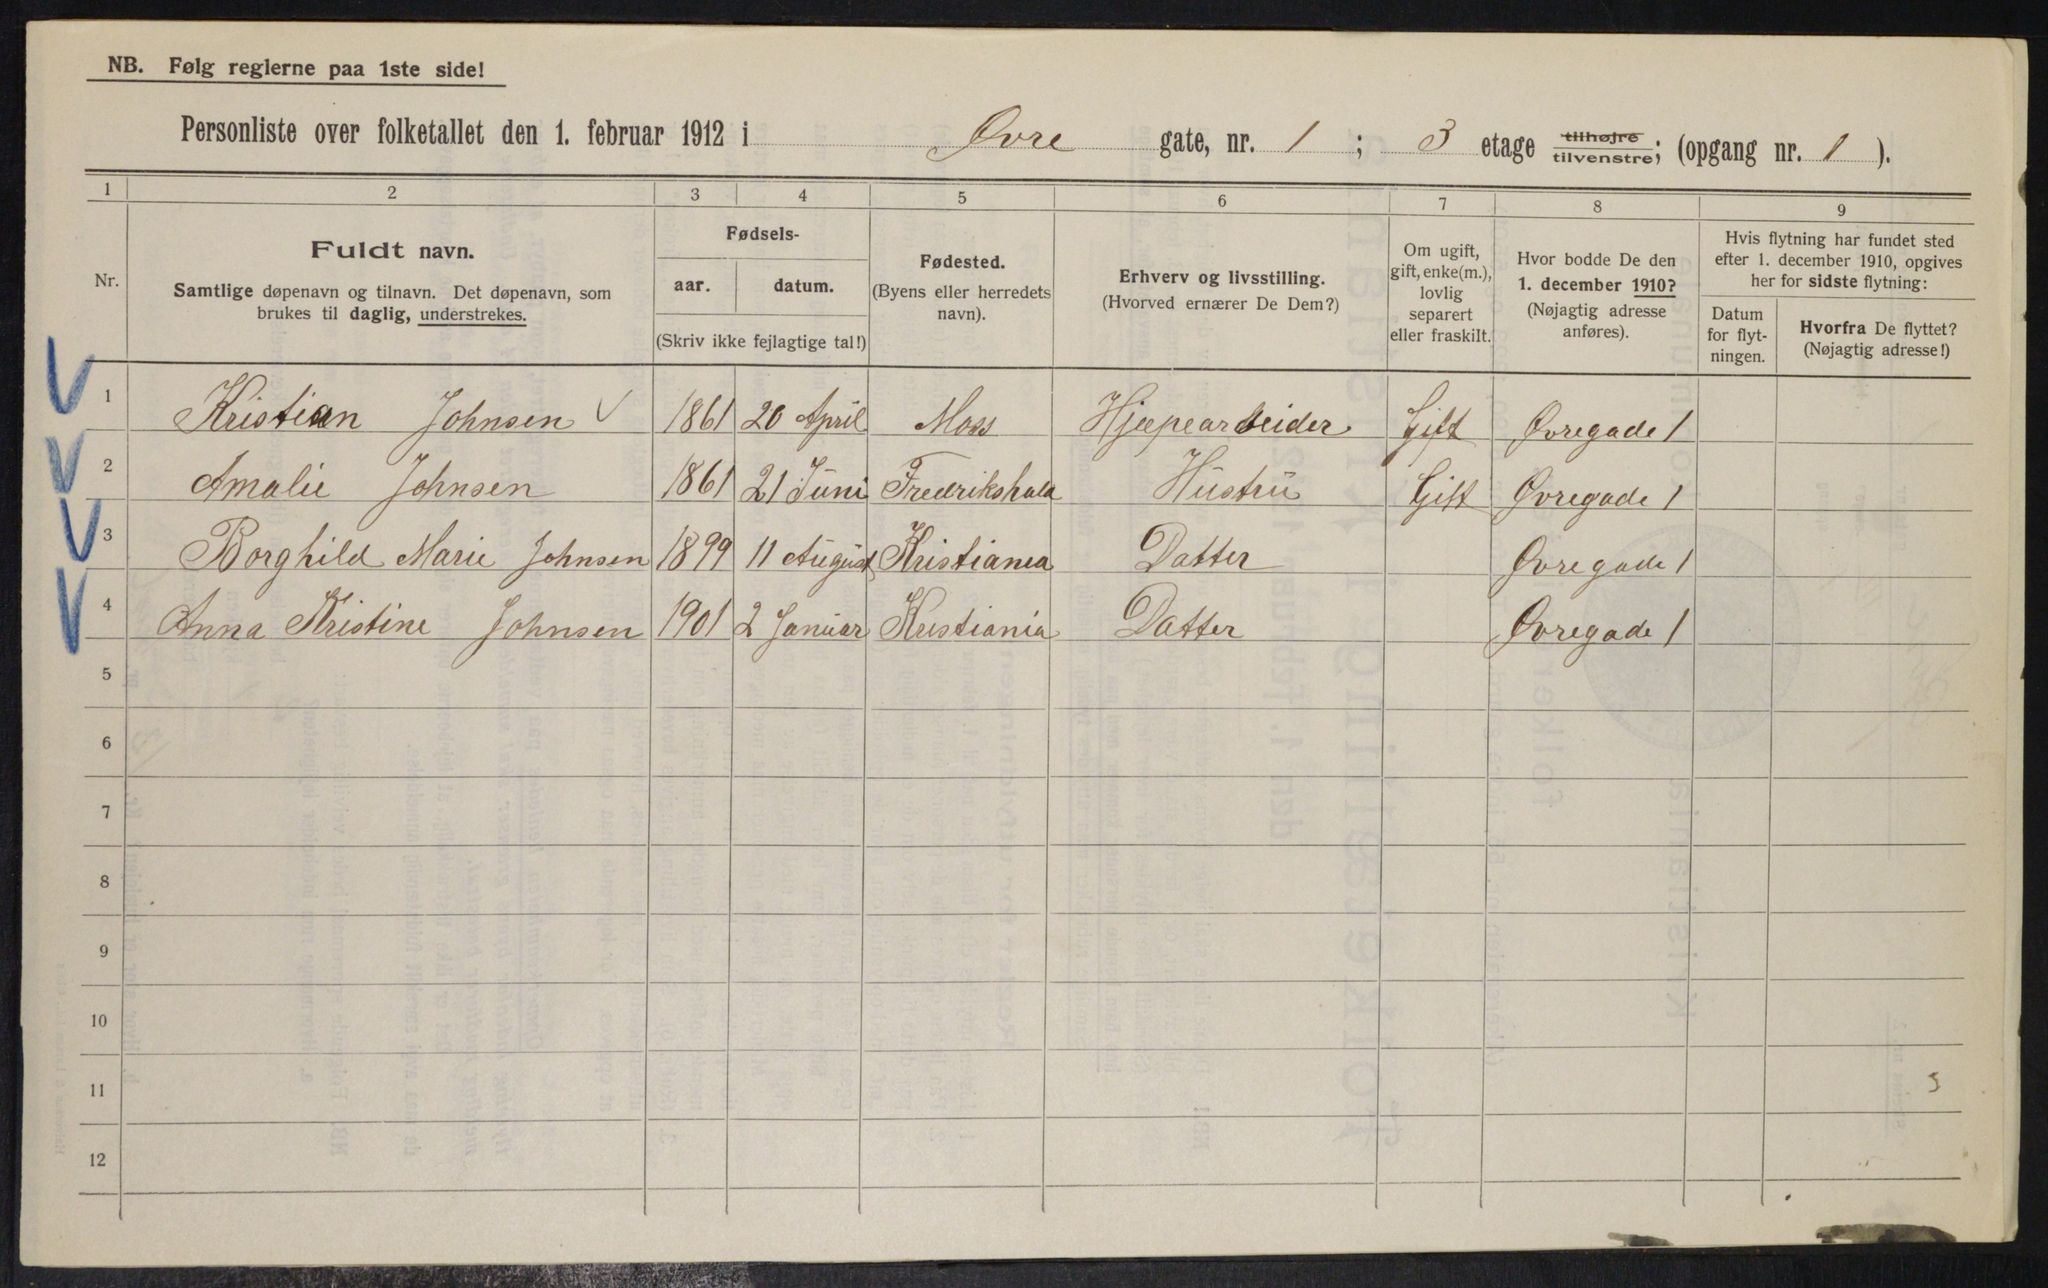 NB. Følg reglerne paa 1ste side!
Personliste over folketallet den 1. februar 1912 i Øvre gate, nr. 1 ; 3 etage tilhøjre tilvenstre; (opgang nr. 1 ).
1 2 3 4 5 6 7 8 9
Nr.
Fuldt navn.
Samtlige døpenavn og tilnavn. Det døpenavn, som
brukes til daglig, understrekes.
Fødsels-
aar. datum.
(Skriv ikke fejlagtige tal!)
Fødested.
(Byens eller herredets
navn).
Erhverv og livsstilling.
(Hvorved ernærer De Dem?)
Om ugift,
gift, enke(m.),
lovlig
separert
eller fraskilt.
Hvor bodde De den
1. december 1910?
(Nøjagtig adresse
anføres).
Hvis flytning har fundet sted
efter 1. december 1910, opgives
her for sidste flytning:
Datum
for flyt-
ningen.
Hvorfra De flyttet?
(Nøjagtig adresse!)
1 Kristian Johnsen 1861 20 April Moss Hjæpearbeider Gift Øvregade 1
2 Amalie Johnsen 1861 21 Juni Fredrikshald Hustru Gift Øvregade 1
3 Borghild Marie Johnsen 1899 11 August Kristiania Datter Øvregade 1
4 Anna Kristine Johnsen 1901 2 Januar Kristiania Datter Øvregade 1
5
6
7
8
9
10
11
12